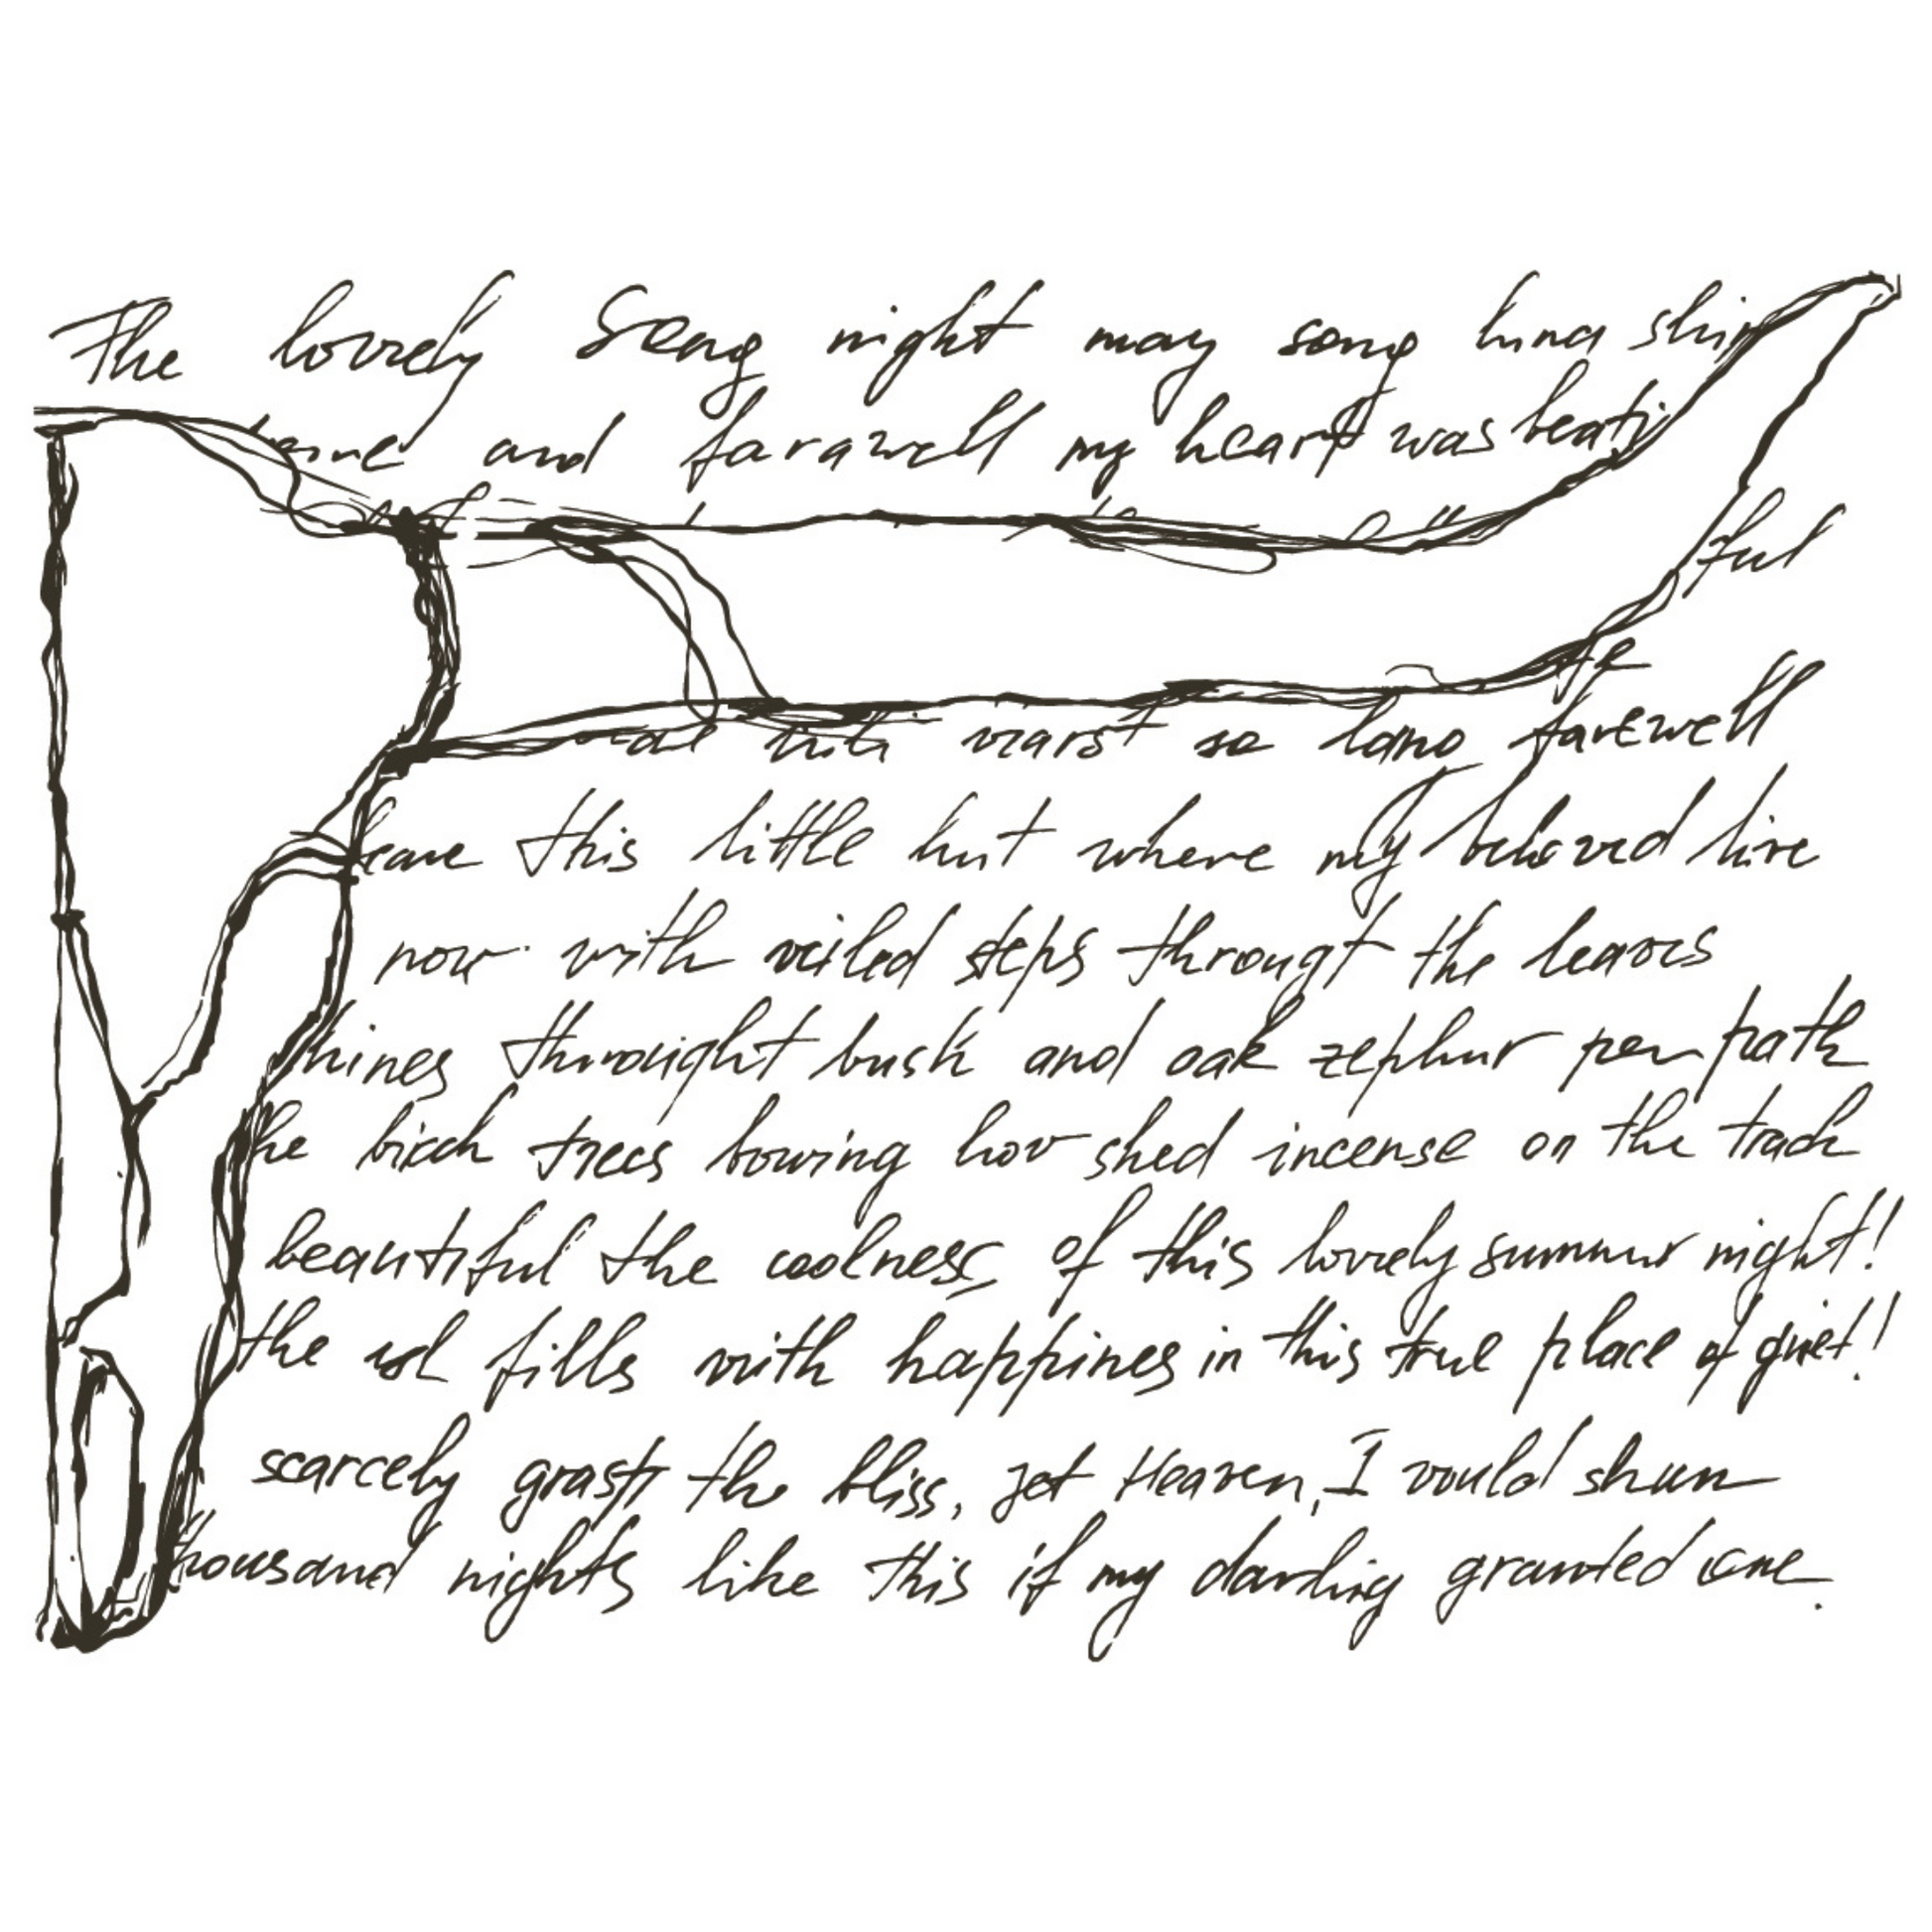 The lovely Seng night may song luna
and farawell my heart was
ful
so farewell
this little hut where my beloved live
now with veiled steps througt the leaves
hines throught bush and oak zephur per path
he birch trees bowing low shed incense on the track
beautiful the coolness of this lovely summer night!
the fills with happines in this true place of quiet!
scarcely grasp the bliss, jet Heaven, I would shun
thousand nights like this if my darling granted one.